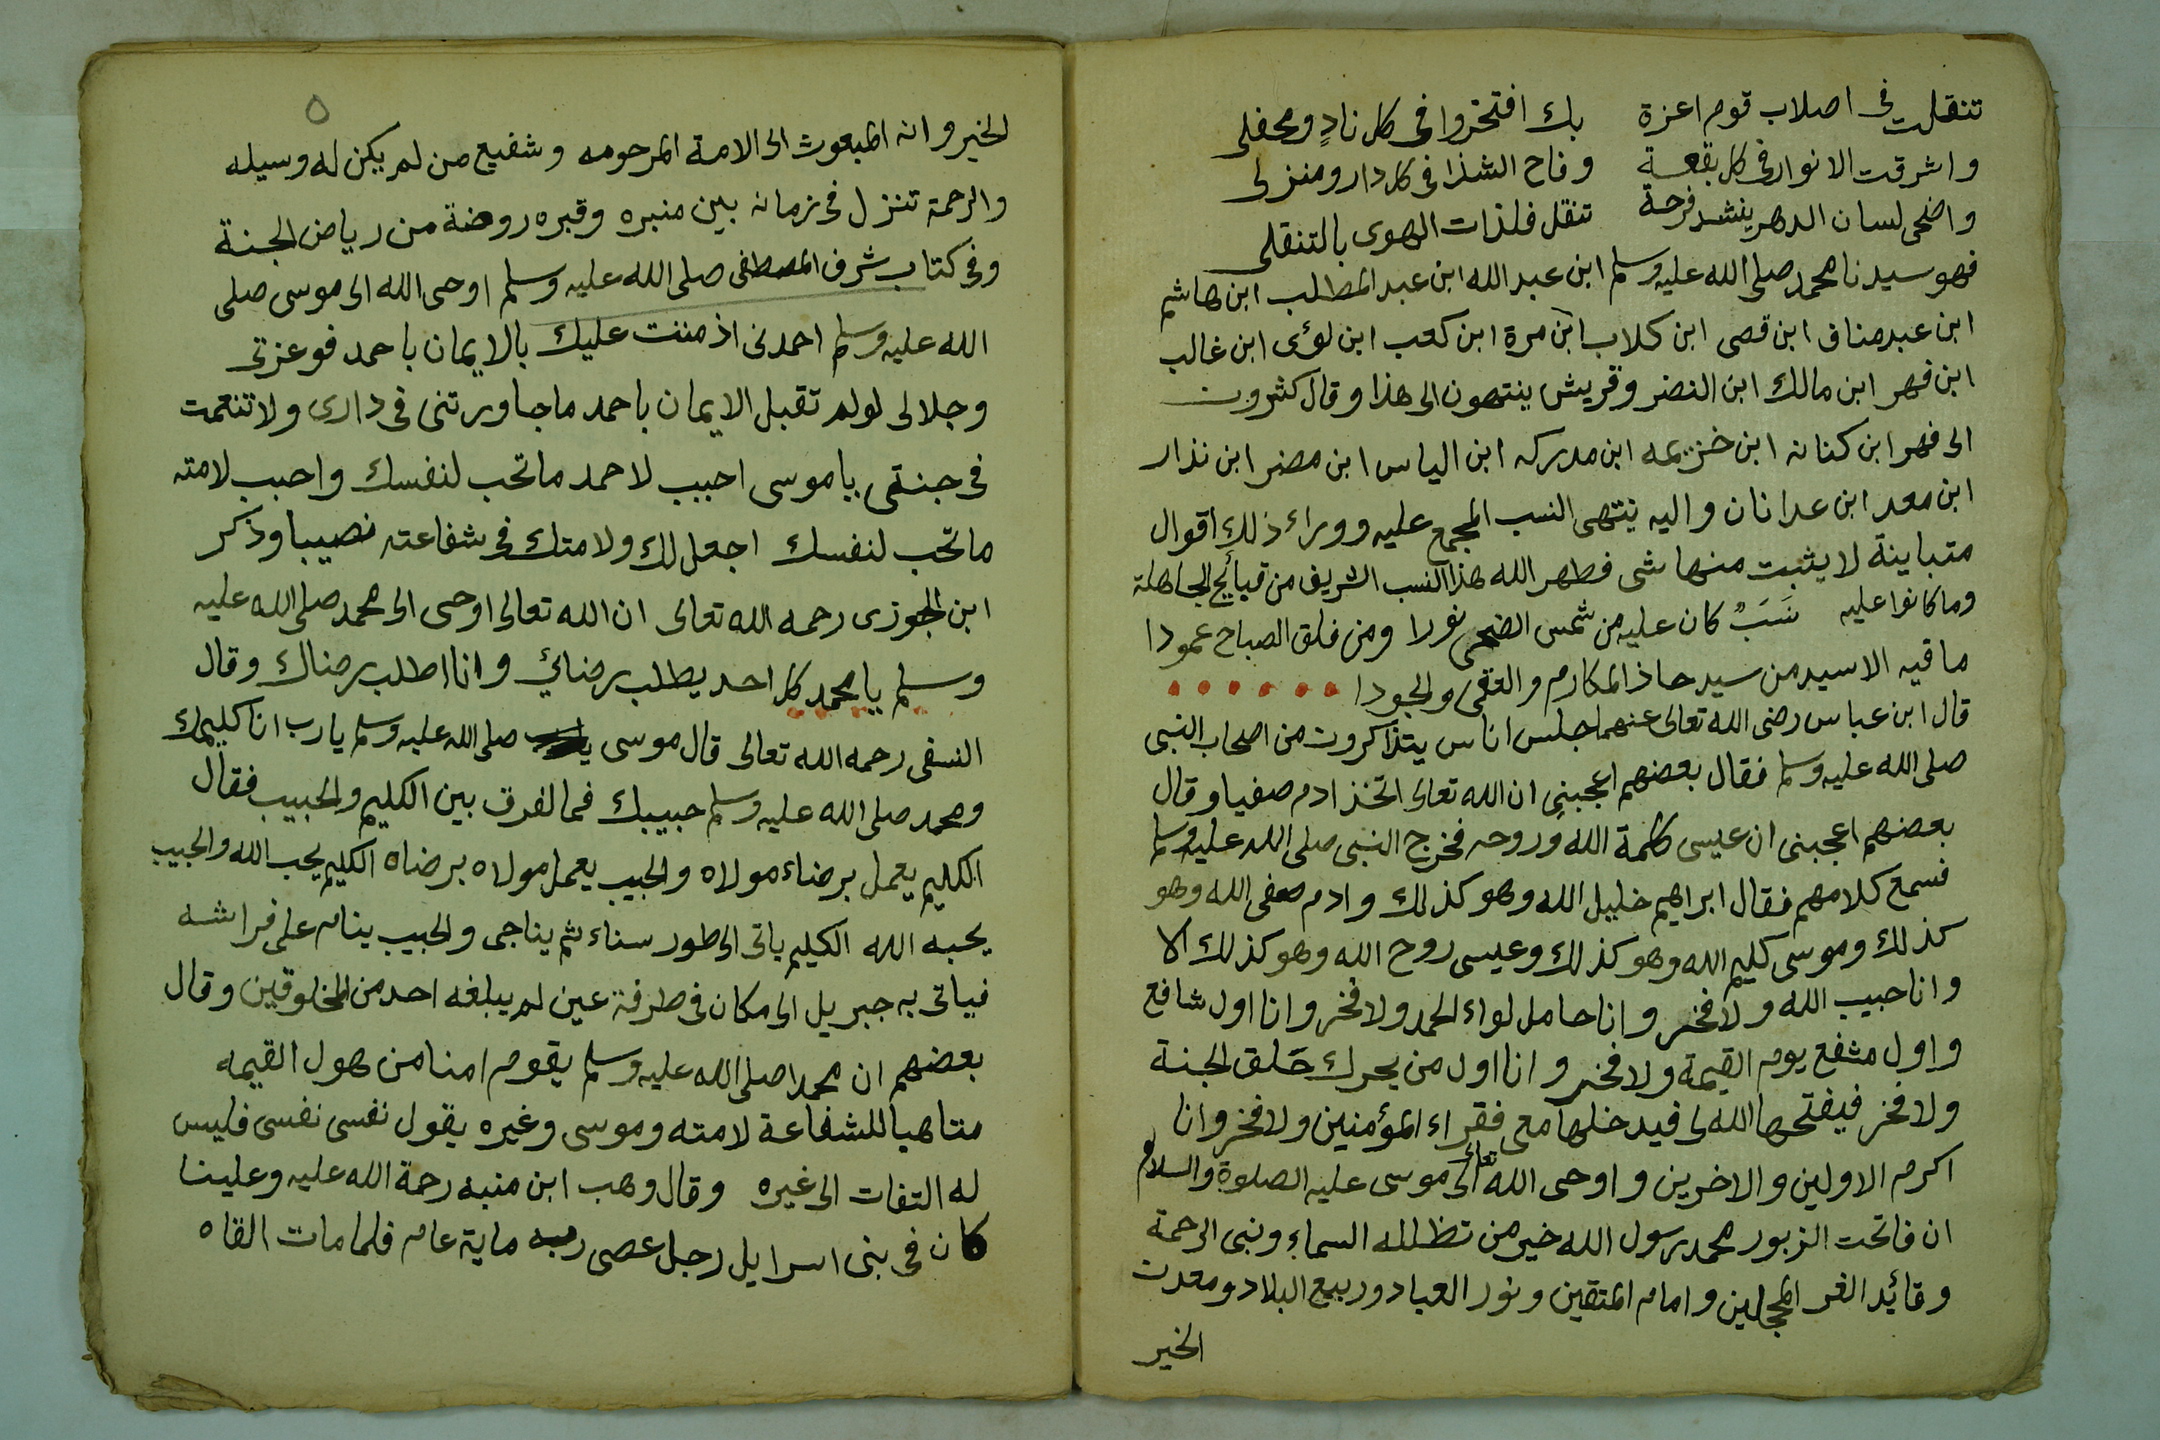 تنقلت في اصلاب قوم اعزة بك افتخروا في كل نادٍ ومحفلي
واشرقت الانوار في كل بقعة وفاح الشذا في كل دار ومنزلي
واضحى لسان الدهر ينشد فرحة تنقل فلذات الهوى بالتنقلي
فهو سيدنا محمد صلى الله عليه وسلم ابن عبد الله ابن عبد المطلب ابن هاشم
ابن عبد مناف ابن قصى ابن كلاب ابن مرة ابن كعب ابن لؤى ابن غالب
ابن فهر ابن مالك ابن النضر وقريش ينتهون الى هذا وقال كثرون
الى فهر ابن كنانه ابن خزيمه ابن مدركه ابن الياس ابن مضر ابن نذار
ابن معد ابن عدانان واليه ينتهى النسب المجمع عليه ووراء ذلك اقوال
متباينة لا يثبت منها شى فطهر الله هذا النسب الشريف من قبائح الجاهلة
وما كانوا عليه نَسَبٌ كان عليه من شمس الضحى نورا ومن فلق الصباح عمودا
ما فيه الا سيد من سيد حاذ المكارم والتقى والجودا
قال ابن عباس رضى الله تعالى عنهما جلس اناس يتذاكرون من اصحاب النبى
صلى الله عليه وسلم فقال بعضهم اعجبنى ان الله تعالى اتخذ ادم صفيا وقال
بعضهم اعجبنى ان عيسى كلمة الله وروحه فخرج النبى صلى الله عليه وسلم
فسمع كلامهم فقال ابراهيم خليل الله وهو كذلك وادم صفى الله وهو
كذلك وموسى كليم الله وهو كذلك وعيسى روح الله وهو كذلك الا
وانا حبيب الله ولا فخر وانا حامل لواء الحمد ولا فخر وانا اول شافع
واول مشفع يوم القيمة ولا فخر وانا اول من يحرك حَلق الجنة
ولا فخر فيفتحها الله لى فيدخلها معى فقراء المؤمنين ولا فخر وانا
اكرم الاولين والاخرين واوحى الله تعالى الى موسى عليه الصلوة والسلام
ان فاتحت الزبور محمد رسول الله خير من تظلله السماء ونبى الرحمة
وقائد الغر المجلين وامام المتقين ونور العباد وربيع البلاد ومعدن
الخير
٥
الخير وانه المبعوث الى الامة المرحومه وشفيع من لم يكن له وسيله
والرحمة تنزل فى زمانه بين منبره وقبره روضة من رياض الجنة
وفى كتاب شرف المصطفى صلى الله عليه وسلم اوحى الله الى موسى صلى
الله عليه وسلم احمدنى اذ مننت عليك بالايمان باحمد فوعزتى
وجلالى لو لم تقبل الايمان باحمد ما جاورتنى فى دارى ولا تنعمت
فى جنتى ياموسى احبب لاحمد ما تحب لنفسك واحبب لامته
ما تحب لنفسك اجعل لك ولامتك فى شفاعته نصيبا وذكر
ابن الجوزى رحمه الله تعالى ان الله تعالى اوحى الى محمد صلى الله عليه
وسلم يا محمد كل احد يطلب رضائي وانا اطلب رضاك وقال
النسفى رحمه الله تعالى قال موسى صلى الله عليه وسلم يارب انا كليمك
ومحمد صلى الله عليه وسلم حبيبك فما الفرق بين الكليم والحبيب فقال
الكليم يعمل برضاء مولاه والحبيب يعمل مولاه برضاه الكليم يحب الله والحبيب
يحبه الله الكليم ياتى الى طور سناء ثم يناجى والحبيب ينام على فراشه
فياتى به جبريل الى مكان فى طرفة عين لم يبلغه احد من المخلوقين وقال
بعضهم ان محمدا صلى الله عليه وسلم يقوم امنا من هول القيمه
متاهبا للشفاعة لامته وموسى وغيره يقول نفسى نفسى فليس
له التفات الى غيره وقال وهب ابن منبه رحمة الله عليه وعلينا
كان فى بنى اسرايل رجل عصى ربه ماية عام فلما مات القاه